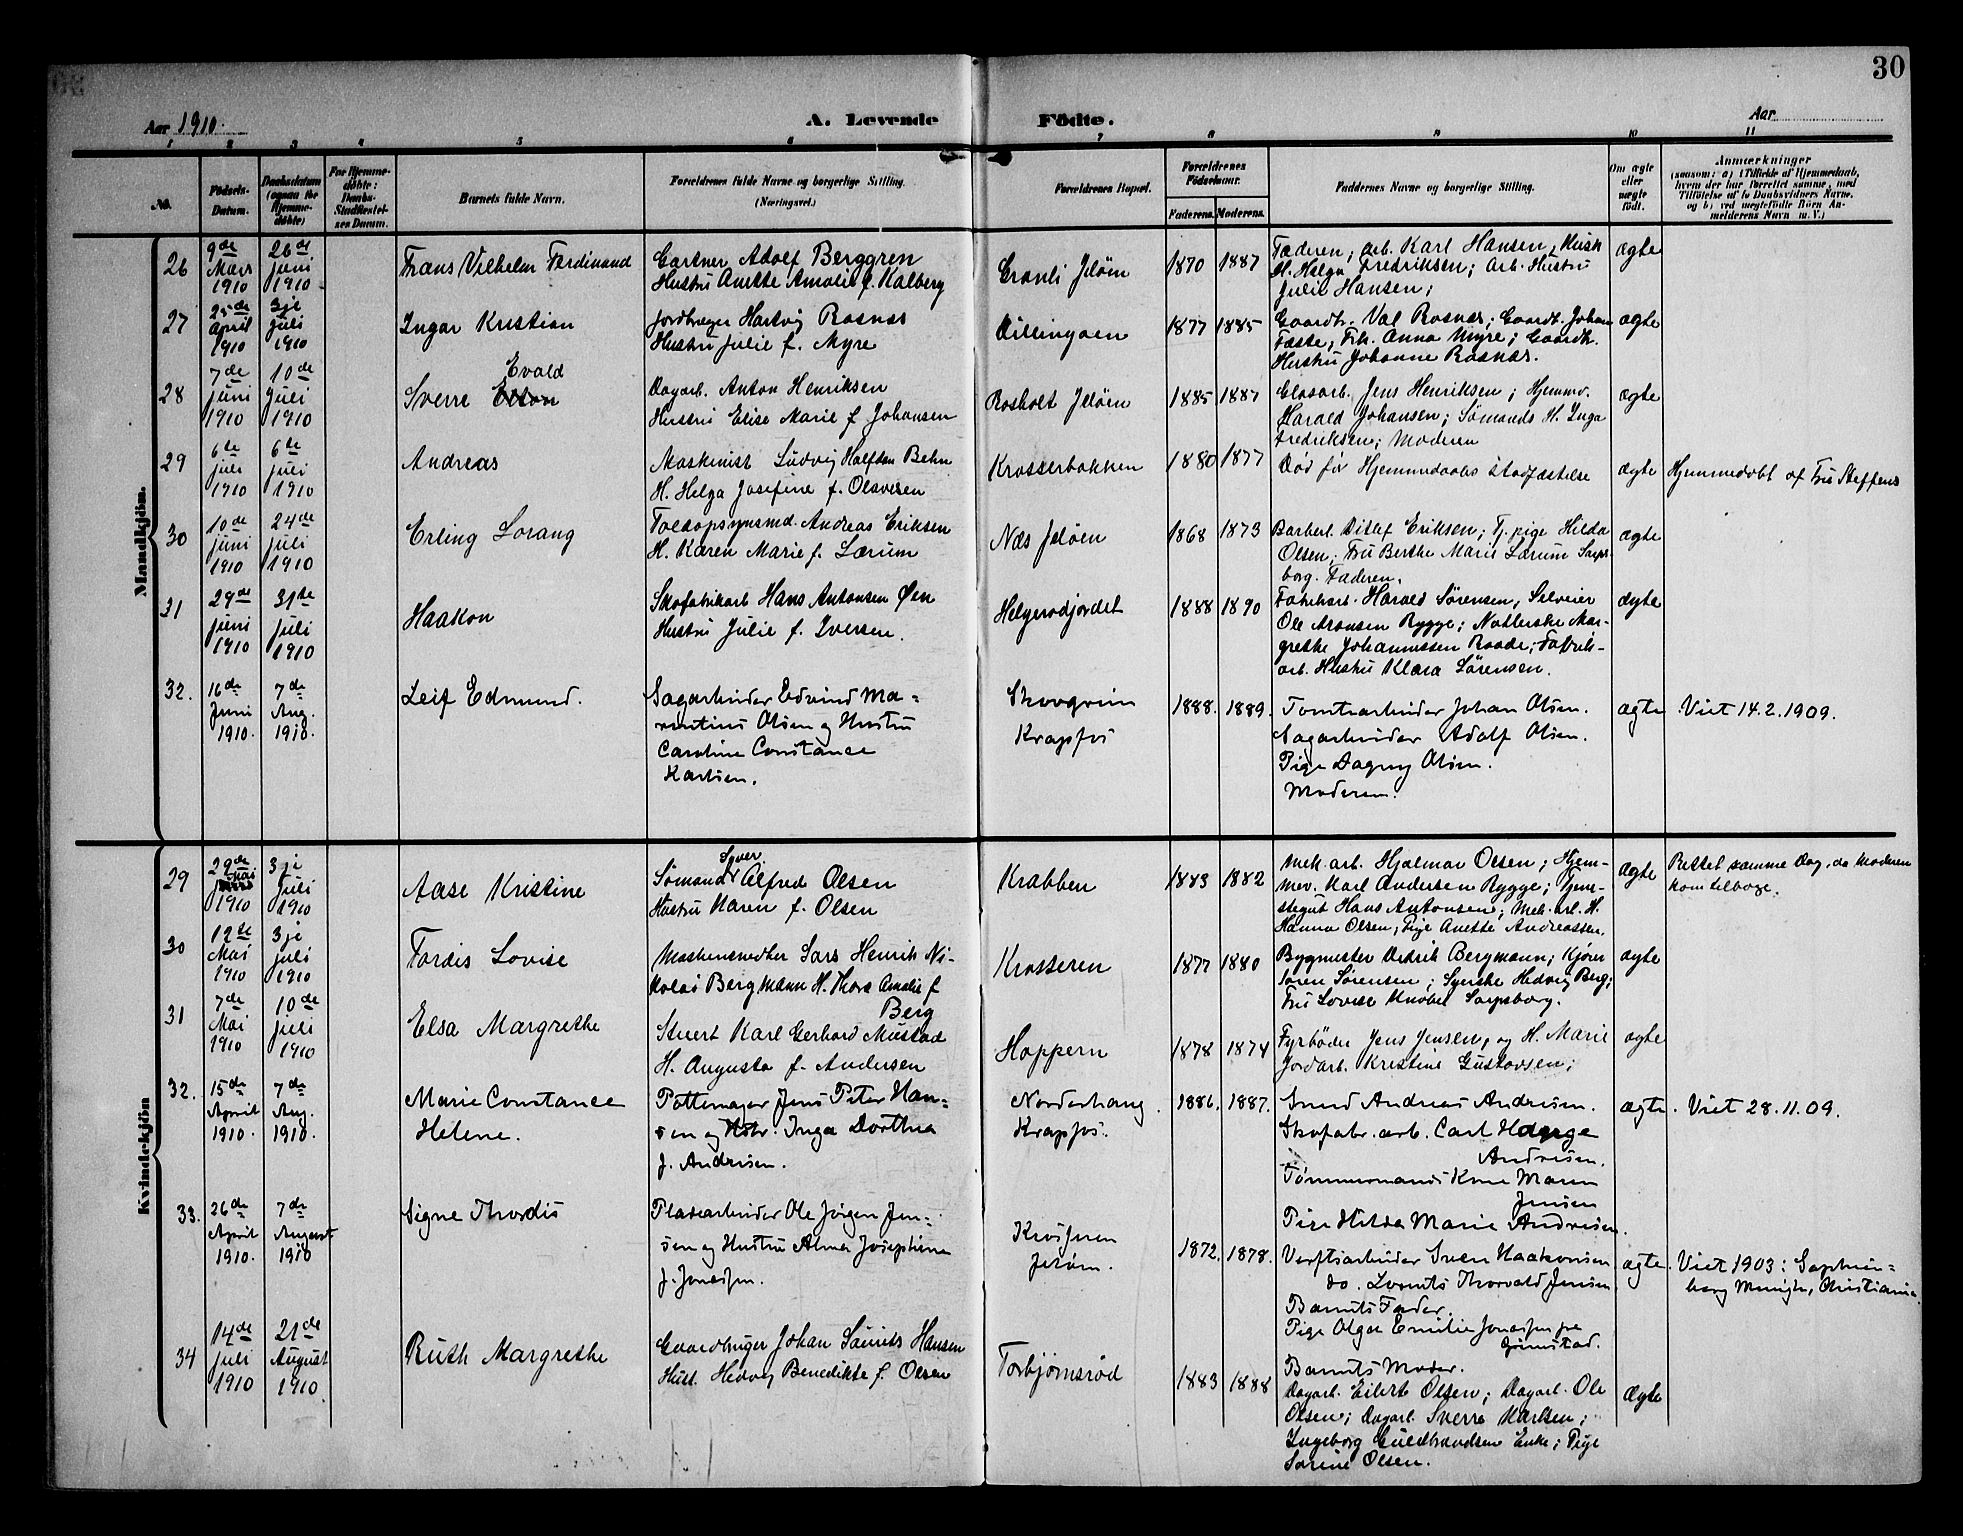 30
Aar 1910. A. Levende Födte. Aar
1 2 3 4 5 6 7 8 9 10 11
No. Födsels-Datum. Daabsdatum (ogsaa for Hjemmedöbte) For Hjemmedöbte: Daabs-Stadfæstelses Datum. Barnets fulde Navn. Forældrenes fulde Navne og borgerlige Stilling. (Næringsvei.) Forældrenes Bopæl. Forældrenes Födselsaar. Faderens. Moderens. Faddernes Navne og borgerlige Stilling. Om ægte eller uægte födt. Anmærkninger (saasom: a) i Tilfælde af Hjemmedaab, hvem der har forrettet samme, med Tilföielse af to Daabsvidners Navne, og b) ved uægtefödte Börn Anmelderens Navn m. V.)
Mandkjön.
26 9de Mars 1910 26de juni 1910 Frans Vilhelm Ferdinand Gartner Adolf Berggren
Hustru Anette Amalie f. Kalberg Grønli Jeløen 1870 1887 Faderen; Arb. Karl Hansen; Husk
H. Helga Fredriksen; Arb. Hustru
Julie Hansen; ægte
27 25de April 1910 3je juli 1910 Ingar Kristian Jordbruger Hartvig Rosnæs
Hustru Julie f. Myre Dillingøen 1877 1885 Gaardbr. Val. Rosnæs; Gaardb. Johan
Fæste; Frk. Anna Myre; Gaardb.
Hustru Johanne Rosnæs. ægte
28 7de juni 1910 10de Juli 1910 Sverre Evald Elton Dagarb. Anton Henriksen
Hustru Elise Marie f Johansen Rosholt Jeløen 1885 1887 Glasarb. Jens Henriksen; Hjemmv.
Harald Johansen; Sømands H. Inga
Fredriksen; Moderen ægte
29 6te juli 1910 6te juli 1910 Andreas Maskinist Ludvig Halfdan Behn
H. Helga Josefine f. Olavesen Krosserbakken 1880 1877 Død før Hjemmedaabs stadfæstelse ægte Hjemmedøbt af Fru Steffens
30 10de juni 1910 24de juli 1910 Erling Lorang Toldopsynsmd. Andreas Eriksen
H. Karen Marie f. Lærum Næs Jeløen 1868 1873 Barber. Ditlef Eriksen; Tj. pige Hilda
Olsen; Fru Berthe Marie Lærum Sarpsborg. Faderen. ægte
31 29de juni 1910 31te juli 1910 Haakon Skofabrikarb Hans Antonsen Øen
Hustru Julie f. Iversen. Helgerødjordet 1888 1890 Fabrikarb. Harald Sørensen, Selveier
Ole Aronsen Rygge; Natterske Margrethe Johannessen Raade; Fabrikarb. Hustru Klara Sørensen. ægte
32. 16de Juni 1910. 7de Aug. 1910. Leif Edmund. Sagarbeider Edvind Marentius Olsen og Hustru
Caroline Constance
Karlsen. Skovgrim
Krapfos 1888. 1889. Tomtearbeider Johan Olsen.
Sagarbeider Adolf Olsen.
Pige Dagny Olsen.
Moderen. ægte Viet 14.2.1909.
Kvindekjön
29 29de Mai 1910 3je Juli 1910 Aase Kristine Sømand Syver Alfred Olsen
Hustru Karen f. Olsen Krabben 1883 1882 Mek. arb. Hjalmar Olsen; Hjemmev. Karl Andersen Rygge; Tjenstegut Hans Antonsen; Mek. arb. H.
Hanna Olsen; Pige Anette Andreassen. ægte Rettet samme Dag, da Moderen
kom tilbage.
30 12te Mai 1910 3je juli 1910 Tordis Lovise Maskensmedker Lars Henrik Nikolai Bergmann H. Thora Amalie f
Berg Krosseren 1877 1880 Bygmester Didrik Bergmann; Kjører
Søren Sørensen; Syerske Hedvig Berg;
Fru Lovise Knobel Sarpsborg. ægte
31 7de Mai 1910 10de juli 1910 Elsa Margrethe Stuert Karl Gerhard Mustad
H. Augusta f. Andersen Hoppern 1878 1874 Fyrbøder Jens Jensen, og H. Marie
Jordarb. Kristine Gustavsen; ægte
32. 15de April 1910. 7de Aug. 1910. Marie Constance
Helene. Pottemager Jens Peter Hansen og Hstr. Inga Dorthea
f. Andresen. Norderhaug
Krapfos. 1886. 1887. Smed Andreas Andresen.
Skofabr. arb. Carl Hauge
Andresen.
Tømmermands Kone Maren
Jensen
Pige Hilda Marie Andresen. ægte. Viet 28.11.09.
33. 26de April 1910. 7de August 1910 Signe Thordis Pladsarbeider Ole Jørgen Jensen og Hustru Alma Josephine
f. Jonassen. Krosseren
Jeløen. 1872. 1878. Verftsarbeider Sven Haakonsen
do. Laurits Thorvald Jensen
Barnets Fader.
Pige Olga Emilie Jonassen fra
Grimstad.
Barnets Moder. ægte. Viet 1903: Saphienberg Menigh., Christiania.
34 14de juli 1910 21de August 1910. Ruth Margrethe Gaardbruger Johan Laurits Hansen
Hust. Hedvig Benedikte f. Olsen Torbjørnsrød 1883 1888 Dagarb. Eilert Olsen; Dagarb. Ole
Olsen; Dagarb. Sverre Karlsen;
Ingeborg Guldbrandsen Enke; Pige
Sarine Olsen. ægte